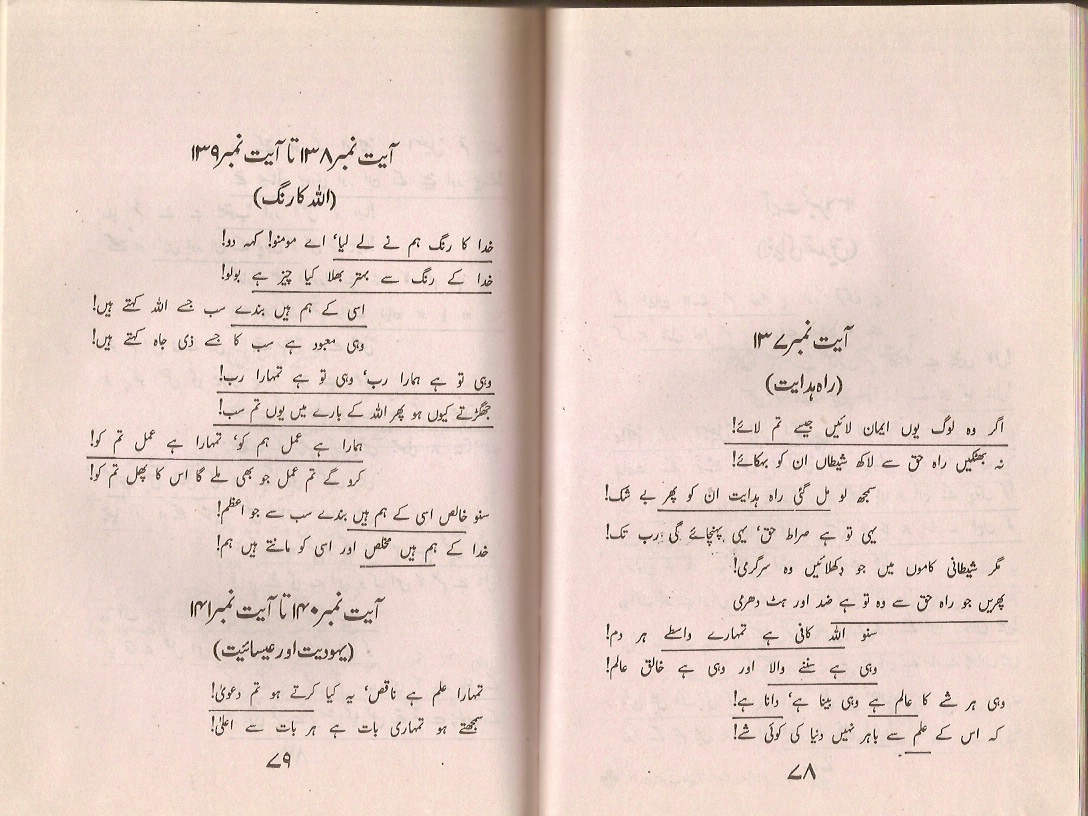 آیت نمبر ۱۳۷
(راہ ہدایت)
اگر وہ لوگ یوں ایمان لائیں جیسے تم لائے!
نہ بھٹکیں راہ حق سے لاکھ شیطاں ان کو بہکائے!
سمجھ لو مل گئی راہ ہدایت ان کو پھر بے شک!
یہی تو ہے صراط حق‘ یہی پہنچائے گی رب تک!
مگر شیطانی کاموں میں جو دکھلائیں وہ سرگرمی!
پھریں جو راہ حق سے وہ تو ہے ضد اور ہٹ دھرمی
سنو اللہ کافی ہے تمہارے واسطے ہر دم!
وہی ہے سننے والا اور وہی ہے خالق عالم!
وہی ہر شے کا عالم ہے وہی بینا ہے‘ دانا ہے!
کہ اس کے علم سے باہر نہیں دنیا کی کوئی شے!
۷۸
آیت نمبر ۱۳۸ تا آیت نمبر ۱۳۹
(اللہ کا رنگ)
خدا کا رنگ ہم نے لے لیا‘ اے مومنو! کہہ دو!
خدا کے رنگ سے بہتر بھلا کیا چیز ہے بولو!
اسی کے ہم ہیں بندے سب جسے اللہ کہتے ہیں!
وہی معبود ہے سب کا جسے ذی جاہ کہتے ہیں!
وہی تو ہے ہمارا رب‘ وہی تو ہے تمہارا رب!
جھگڑتے کیوں ہو پھر اللہ کے بارے میں یوں تم سب!
ہمارا ہے عمل ہم کو‘ تمہارا ہے عمل تم کو!
کرو گے تم عمل جو بھی ملے گا اس کا پھل تم کو!
سنو خالص اسی کے ہم ہیں بندے سب سے جو اعظم!
خدا کے ہم ہیں مخلص اور اسی کو مانتے ہیں ہم!
آیت نمبر ۱۴۰ تا آیت نمبر ۱۴۱
(یہودیت اور عیسائیت)
تمہارا علم ہے ناقص‘ یہ کیا کرتے ہو تم دعویٰ!
سمجھتے ہو تمہاری بات ہے ہر بات سے اعلیٰ!
۷۹